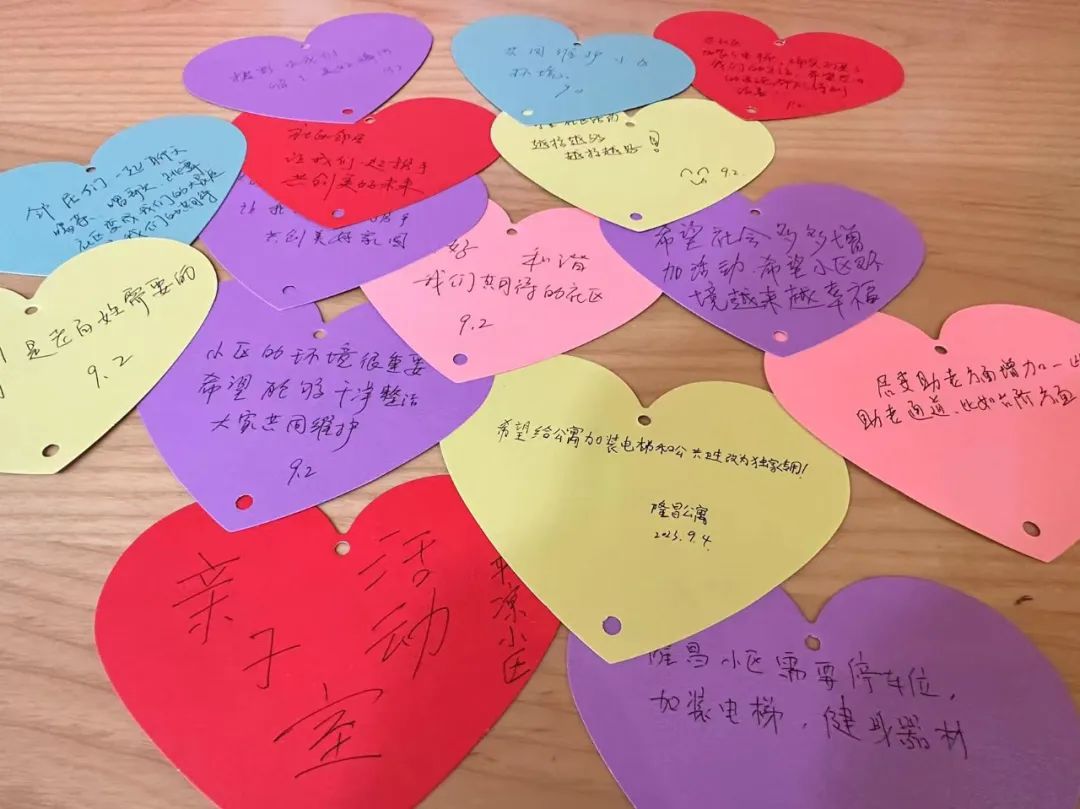 共同维护小区
环境
9.2
社区邻居
让我们一起携手
共创美好未来
越搞越好
越搞越好！
9.2
9.2
邻居们一起聊天
共创美好家园
好 和谐
我们共同的社区
9.2
希望社会多多增
加活动.希望小区环
境越来越幸福
是老百姓需要的
9.2
小区的环境很重要
希望能够干净整洁
大家共同维护
9.2
居委助老方面增加一些
助老通道、比如台阶方面
希望给公寓加装电梯和公共卫生改为独家专用！
隆昌公寓
2023.9.4.
亲子活动室
平凉小区
隆昌小区需要停车位，
加装电梯，健身器材